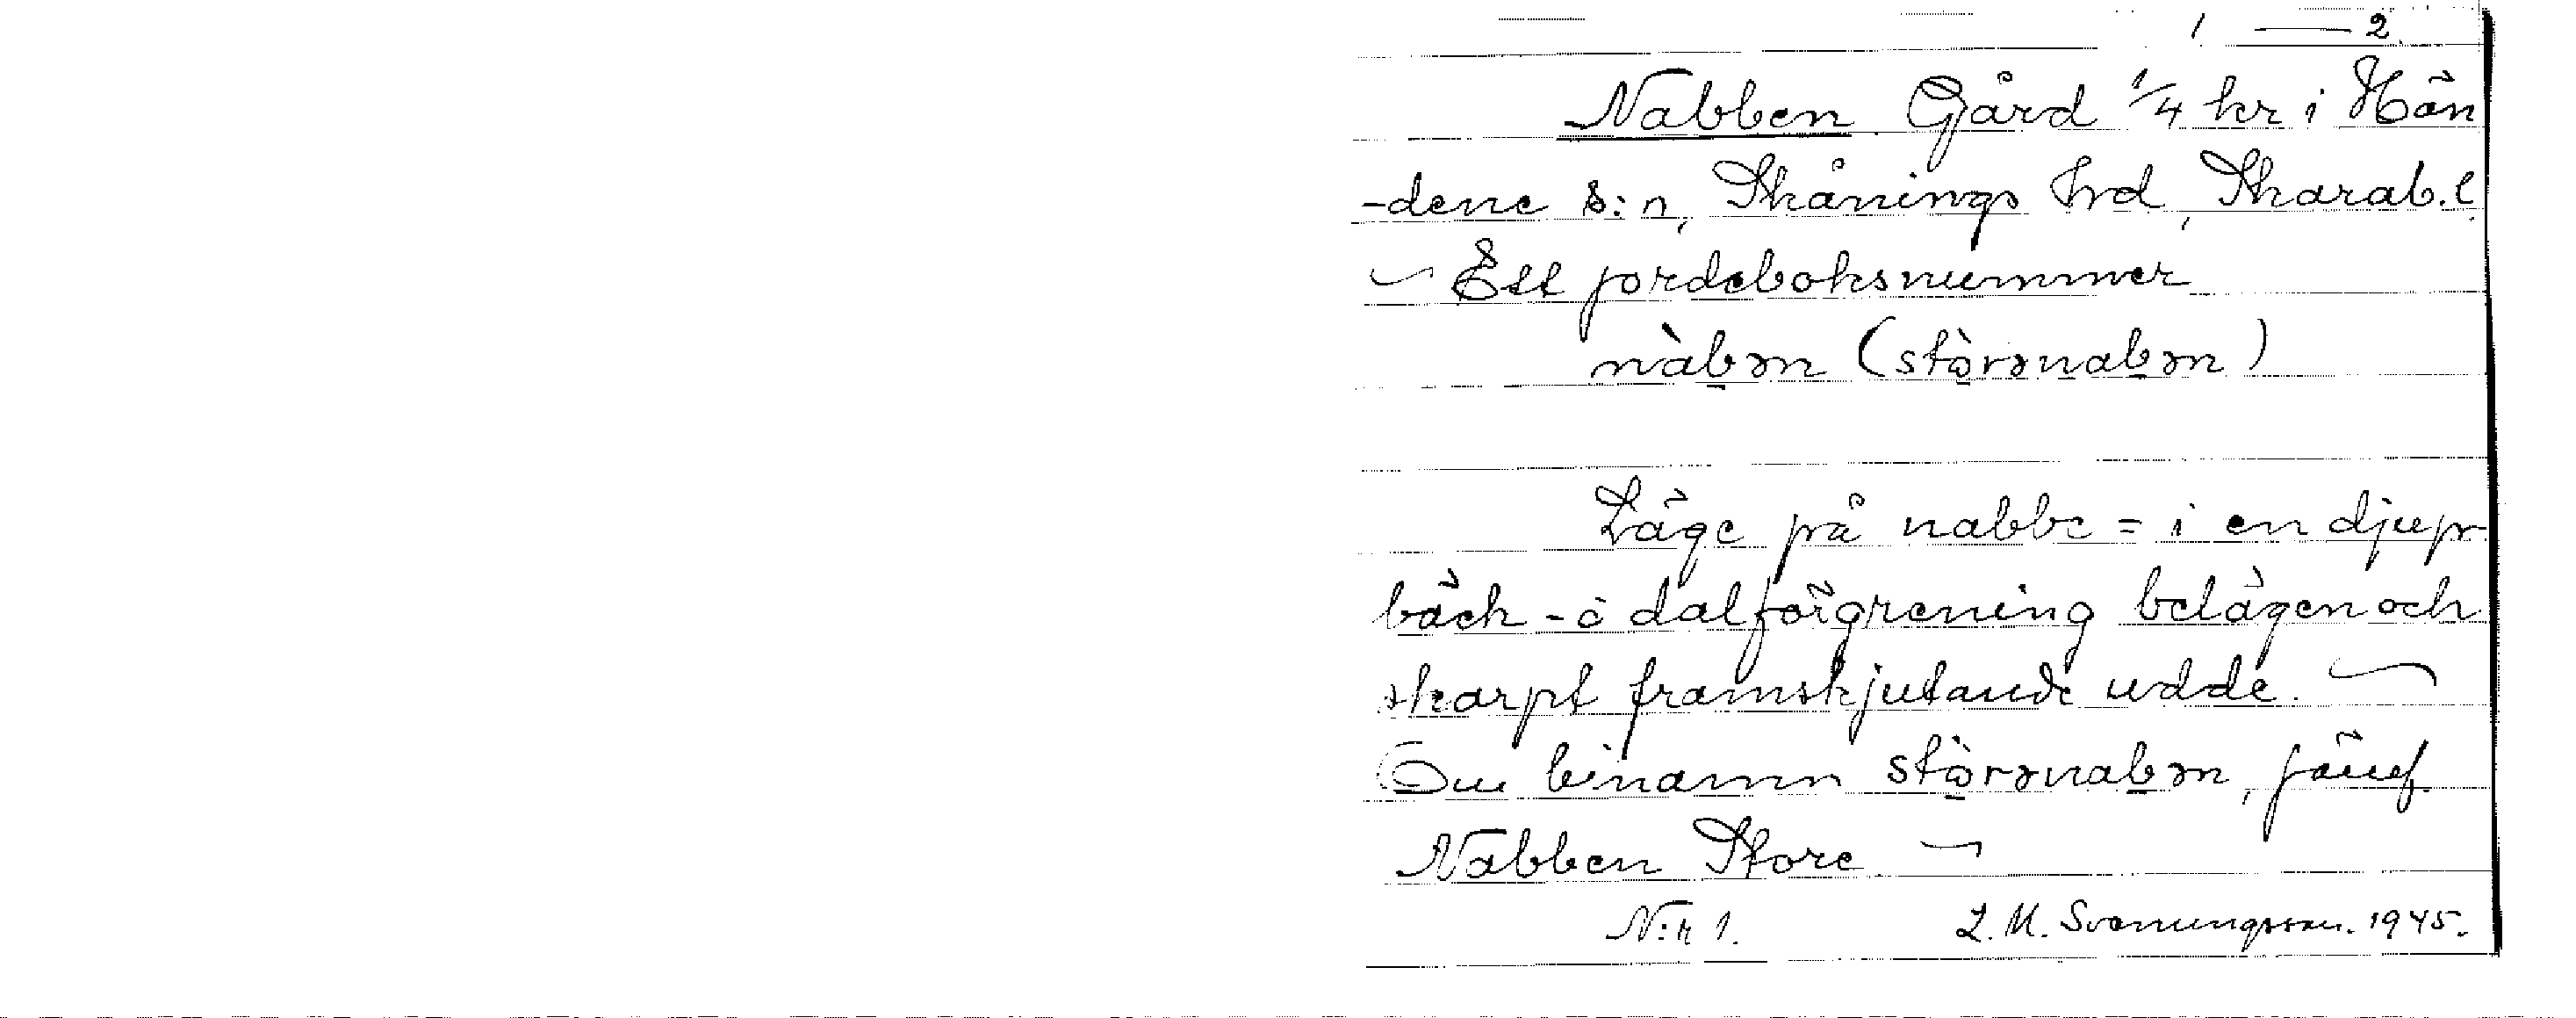 1 — 2.
Nabben. Gård 1/4 kr i Hän
-dene s:n, Skånings hrd, Skarab. l.
Ett jordeboksnummer
nàbən (stòrənabən)
Läge på nabbe = i en djup
bäck - å dalförgrening belägen och
skarpt framskjutande udde.
Om binamn stòrənabən, jämf.
Nabben Store
N:r 1. L. M. Svanungsson. 1945.